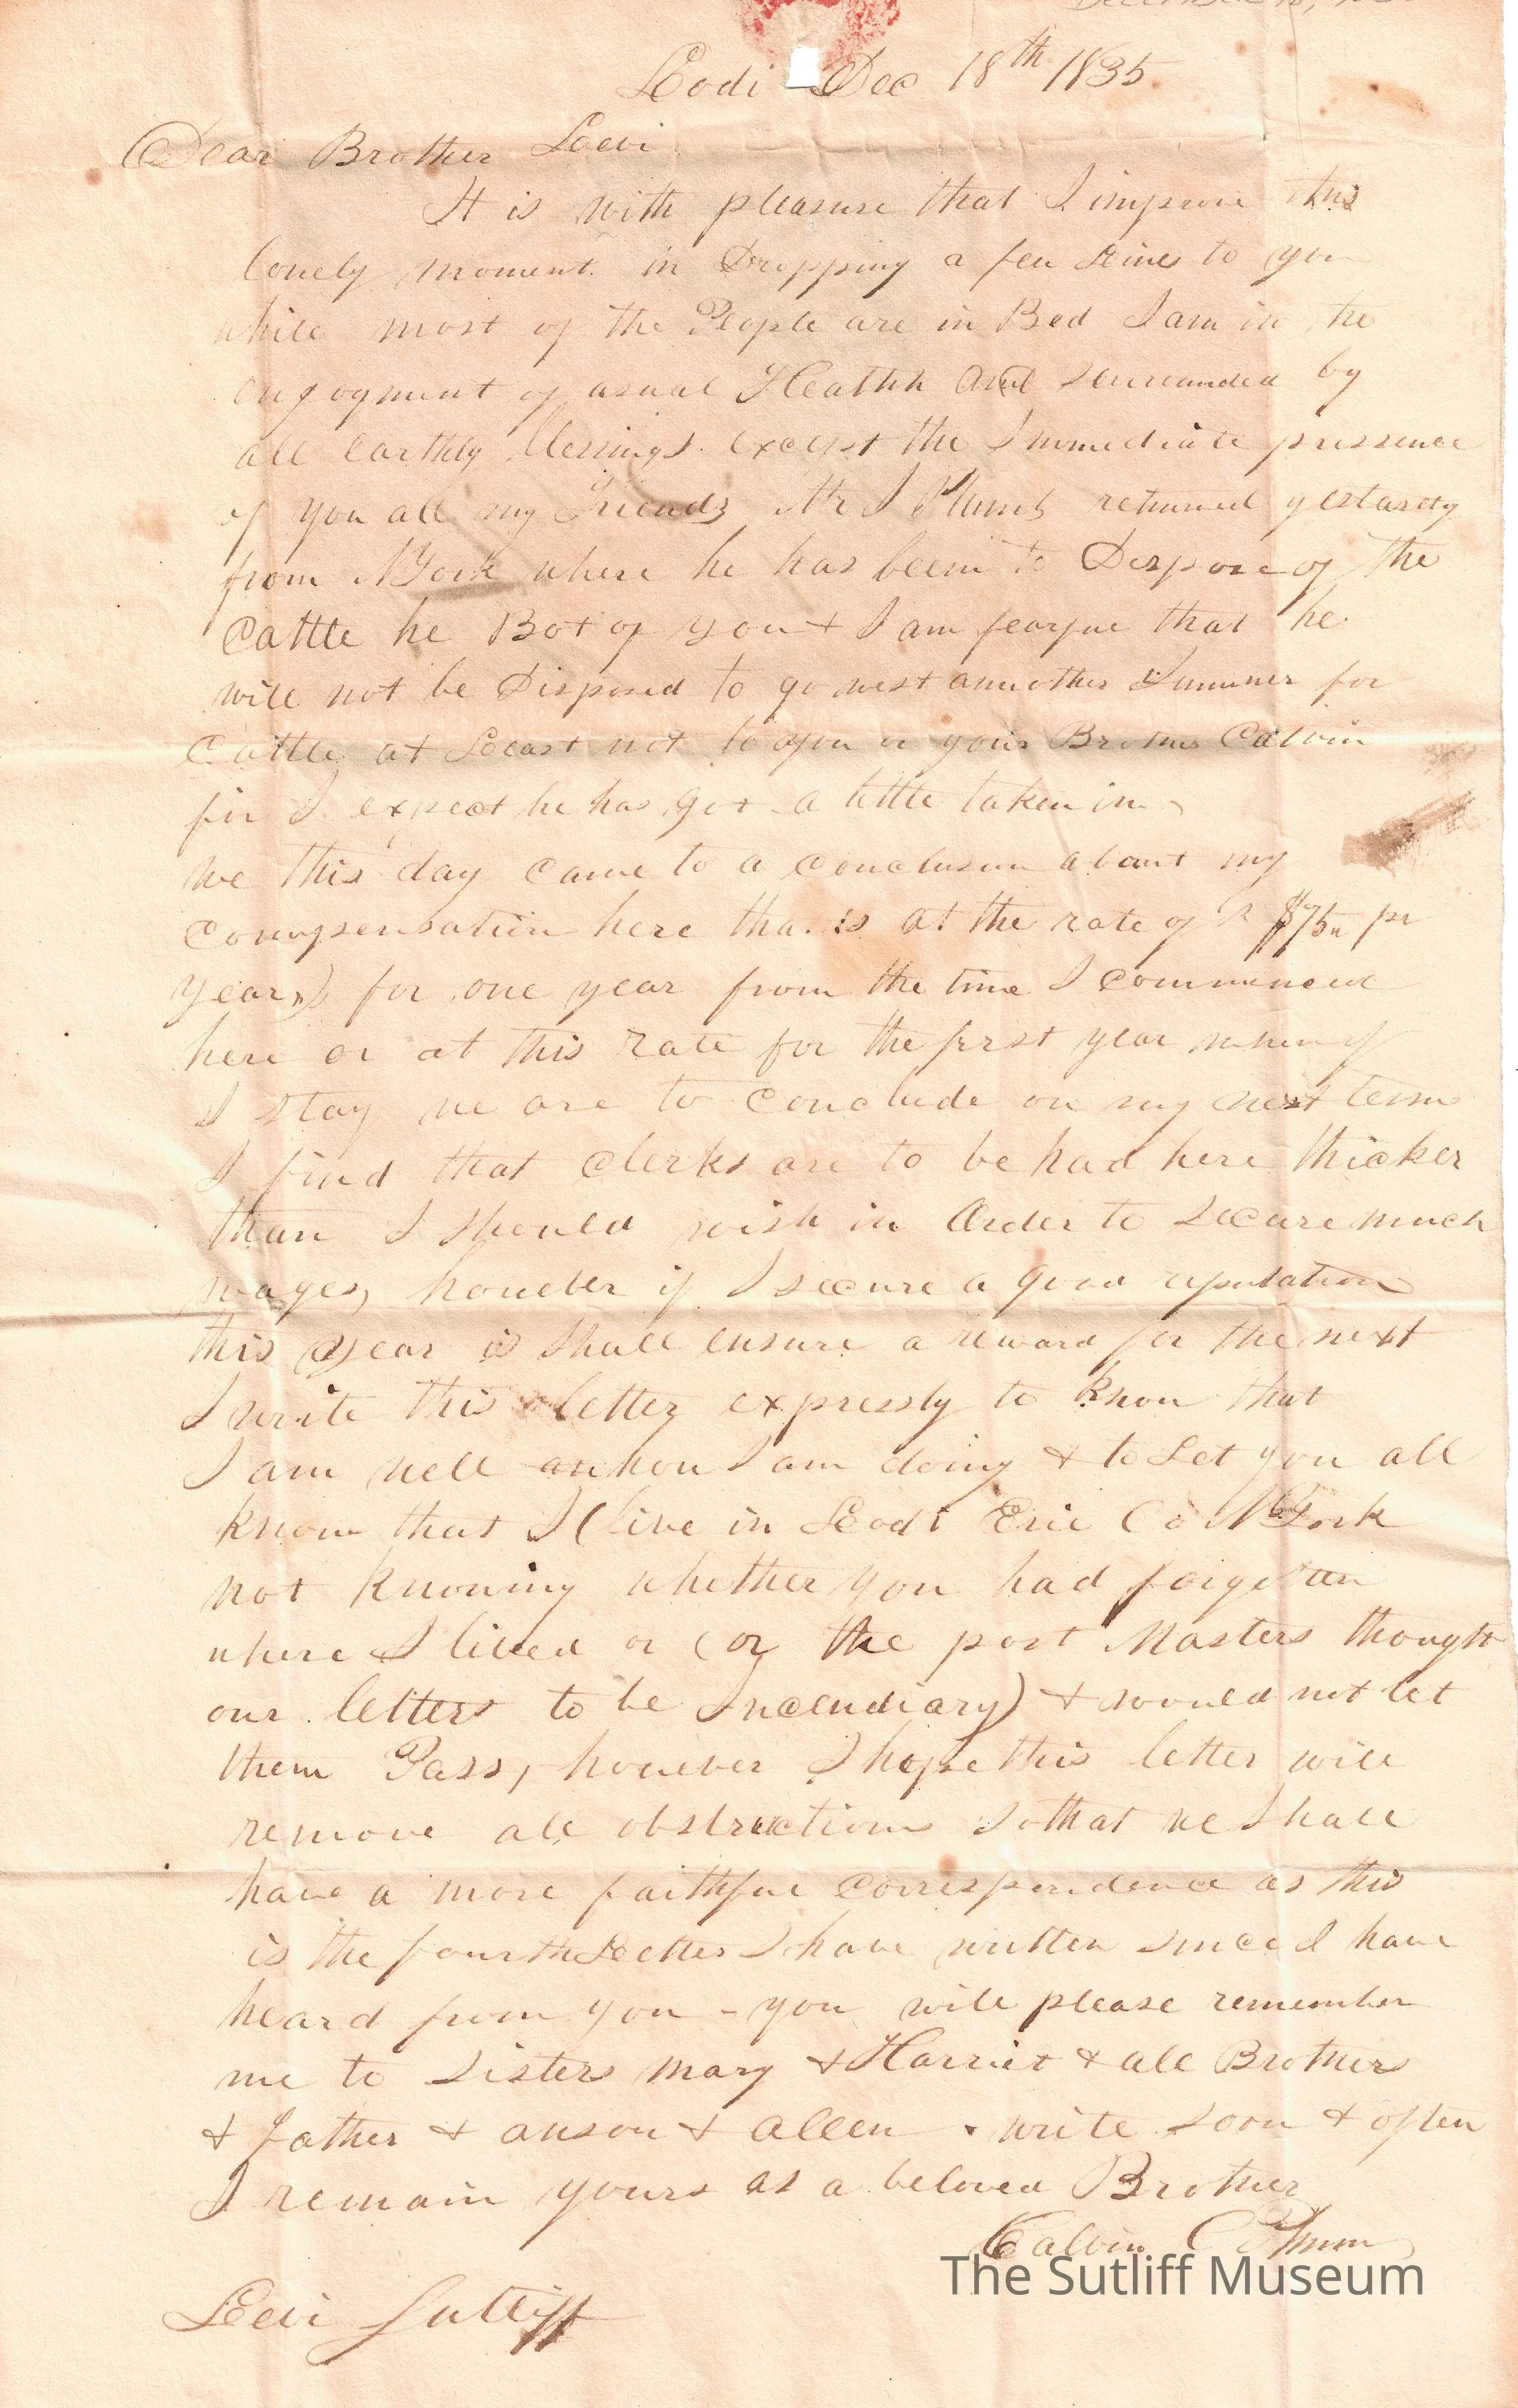 Lodi Dec 18th 1835
Dear Brother Levi
It is with pleasure that I improve this
lonely moment in Dropping a few Lines to you
while most of the People are in Bed I am in the
engoyment of usual Health and surrounded by
all earthly blessings except the Immediate pressence
of you all my Friends Mr I Plumb returned yestarday
from NYork where he has been to Dispose of the
Cattle he Bot of you & I am fearful that he
will not be Disposed to go west annother Summer for
Cattle at Least not to you or your Brother Calvin
for I expect he has got a little taken in
we this day came to a conclusion about my
Compensation here that is at the rate of $75 pr
year) for one year from the time I commenced
here or at this rate for the first year when if
I stay we are to conclude on my next term
I find that clerks are to be had here thicker
than I should wish in Order to secure much
wages, howeber if I secure a good reputation
this year is shall ensure a reward for the next
I write this letter expressly to know that
I am well an how I am doing & to Let you all
know that I (live in Lodi Erie Co NYork
not knowing whether you had forgotten
where I lived or (or the post Masters thought
our letters to be Incendiary) & would not let
them Pass, however I hope this letter will
remove all obstructions so that we shall
have a more faithful correspondence as this
is the fourth Letter I have written since I have
heard from you - you will please remember
me to Sisters Mary & Harriet & all Brothers
& father & anson & allen . write soon & often
I remain yours as a beloved Brother
Calvin C
Levi Sutliff
The Sutliff Museum